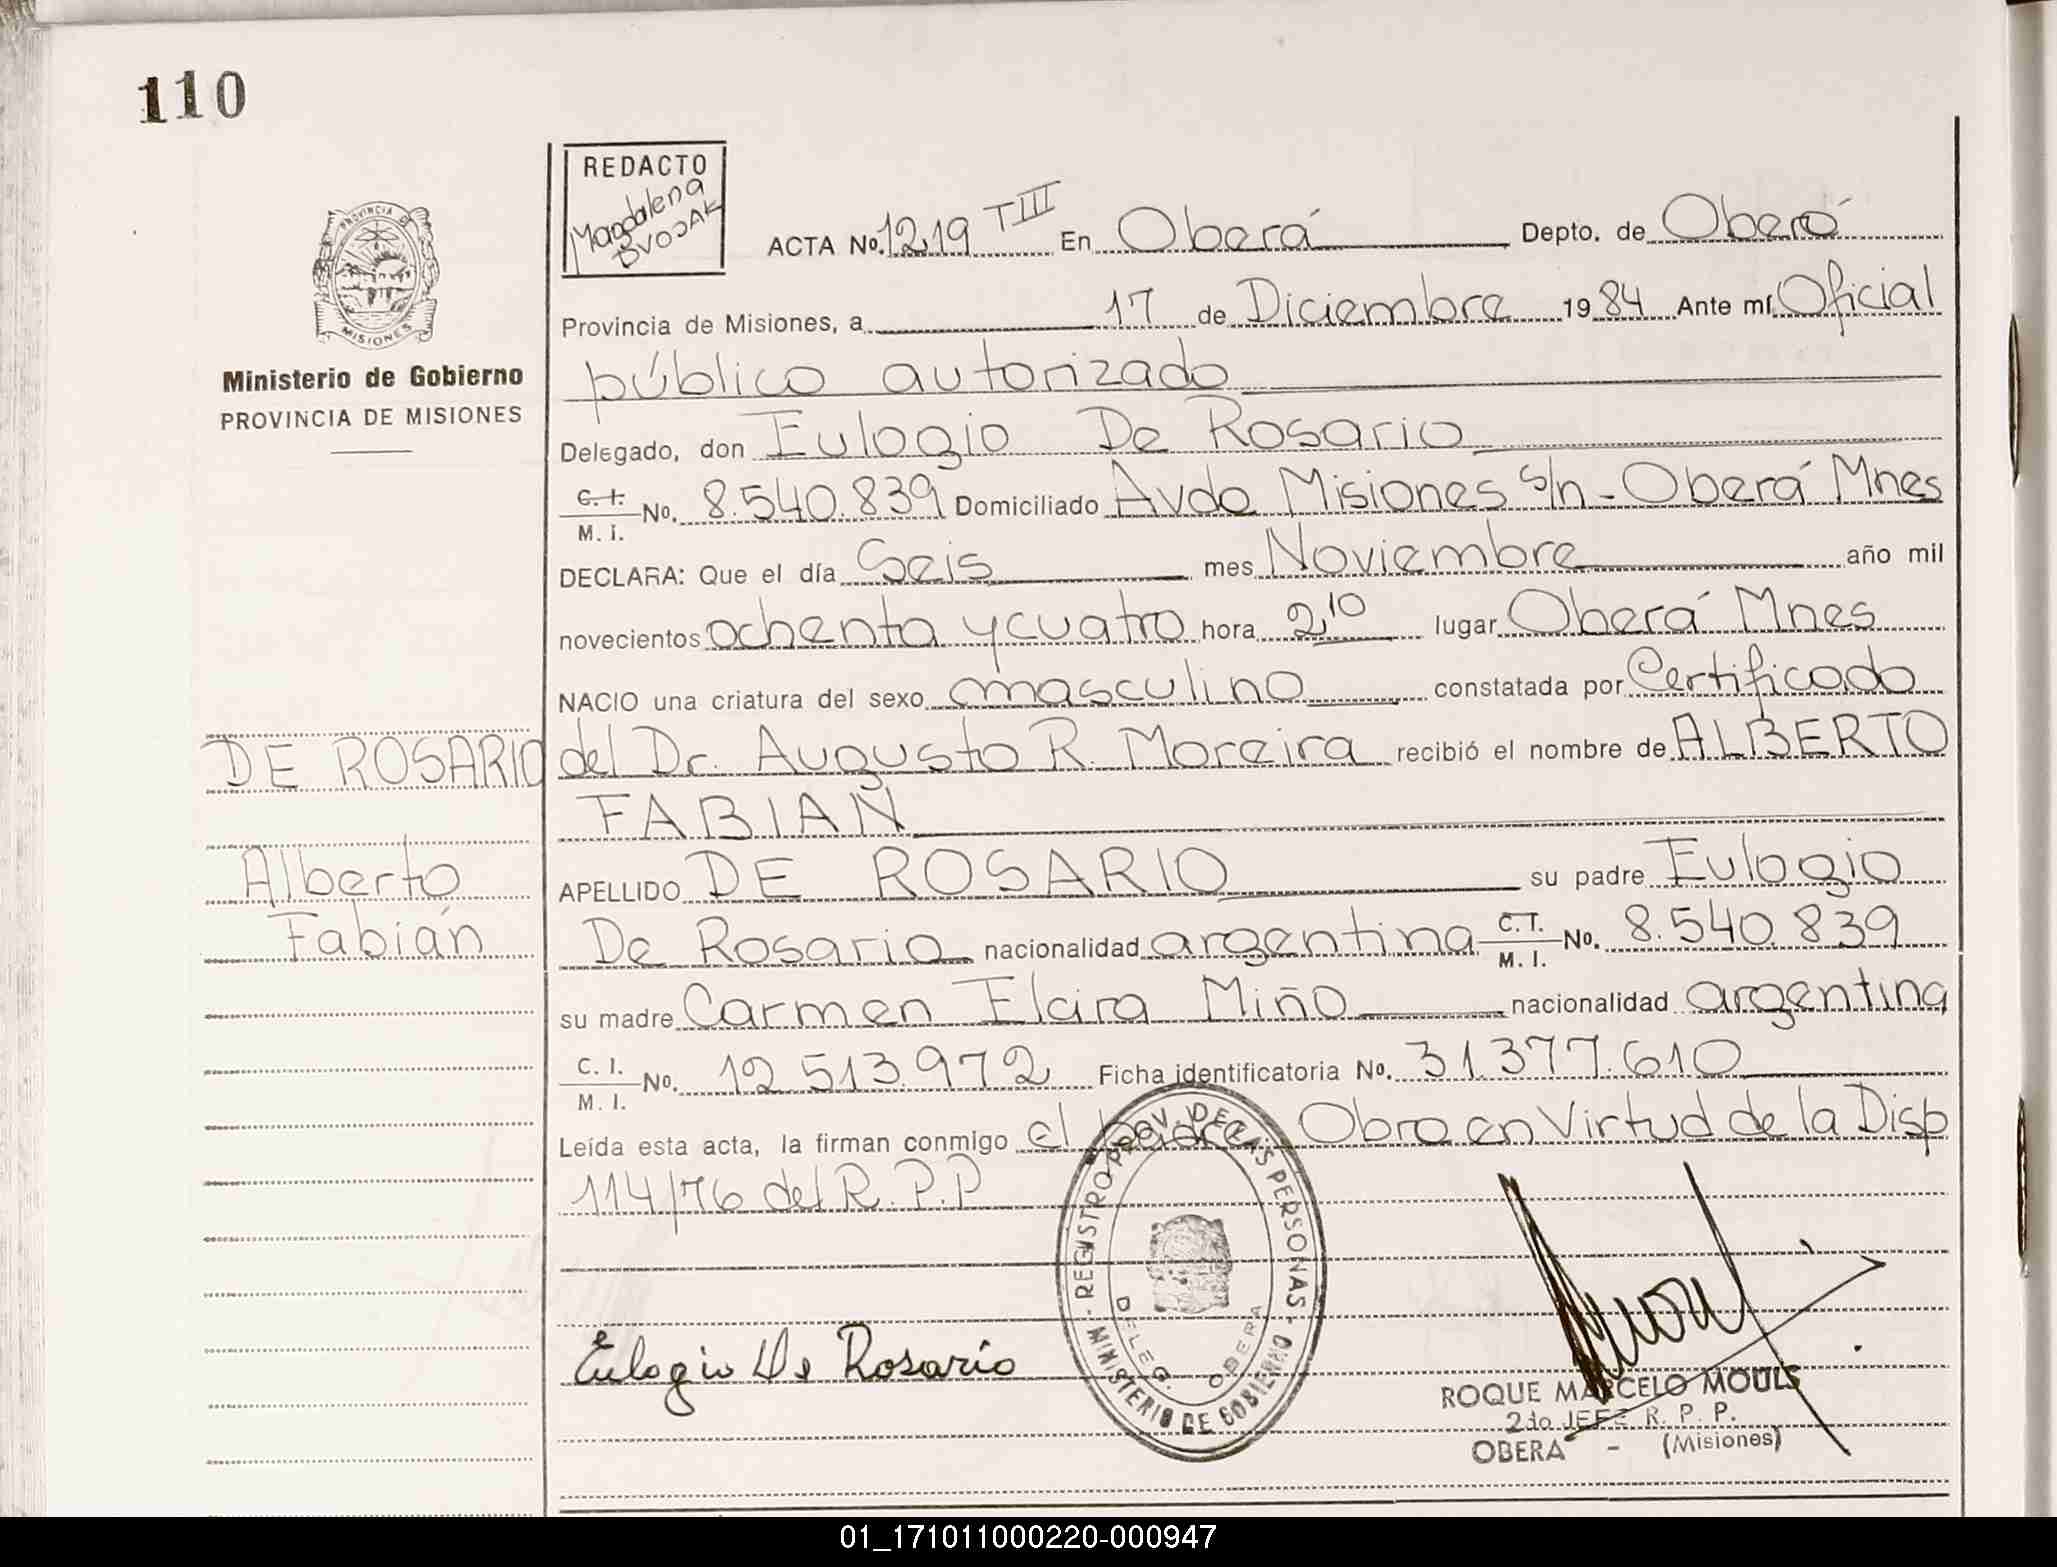 110
REDACTO
Magdalena
BVOJAK
PROVINCIA DE
MISIONES
Ministerio de Gobierno
PROVINCIA DE MISIONES
ACTA No. 1219 TIII En Oberá Depto. de Oberá
Provincia de Misiones, a 17 de Diciembre 1984 Ante mí Oficial
público autorizado
Delegado, don Eulogio De Rosario
C. I. M. I. No. 8.540.839 Domiciliado Avda Misiones s/n - Oberá Mnes
DECLARA: Que el día Seis mes Noviembre año mil
novecientos ochenta y cuatro hora 2,10 lugar Oberá Mnes
NACIO una criatura del sexo masculino constatada por Certificado
del Dr. Augusto R. Moreira recibió el nombre de ALBERTO
FABIAN
APELLIDO DE ROSARIO su padre Eulogio
De Rosario nacionalidad argentina C.I. M. I. No. 8.540.839
su madre Carmen Elcira Miño nacionalidad argentina
C. I. M. I. No. 12 513.972 Ficha identificatoria No. 31.377.610
Leída esta acta, la firman conmigo el padre. Obro en Virtud de la Disp
114/76 del R.P.P
DE ROSARIO
Alberto
Fabián
REGISTRO PROV. DE LAS PERSONAS
MINISTERIO DE GOBIERNO
DELEG. OBERA
Eulogio De Rosario
ROQUE MARCELO MOULS
2do JEFE R. P. P.
OBERA - (Misiones)
01_171011000220-000947